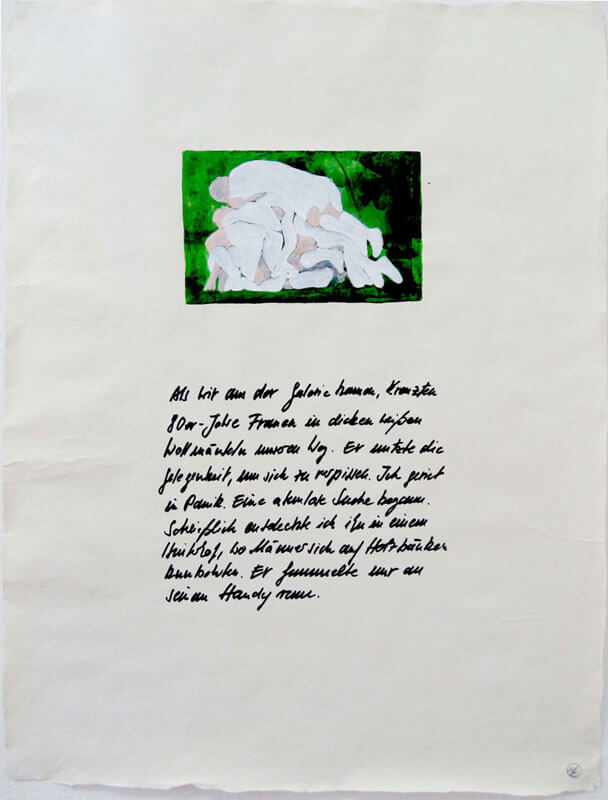 Als wir aus der Galerie kamen, kreuzten
80er-Jahre Frauen in dicken weißen
Wollmänteln unseren Weg. Er nutzte die
Gelegenheit, um sich zu verpissen. Ich geriet
in Panik. Eine atemlose Suche begann.
Schließlich entdeckte ich ihn in einem
wo Männer sich auf Holzbänken
Er fummelte nur an
seinem Handy rum.